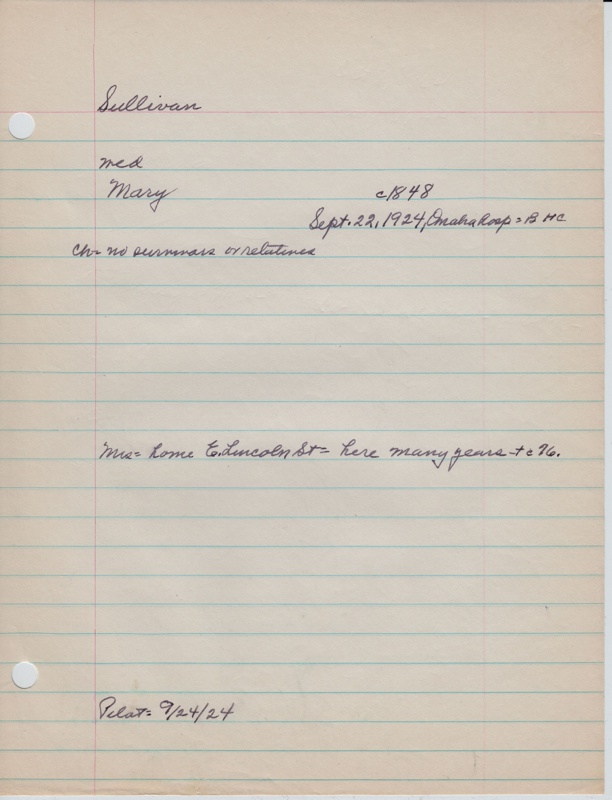 Sullivan
med
Mary c1848
Sept. 22, 1924, Omaha hosp = B HC
Ch = no survivors or relatives
Mrs = home E. Lincoln St = here many years + c 76.
Pilot = 9/24/24